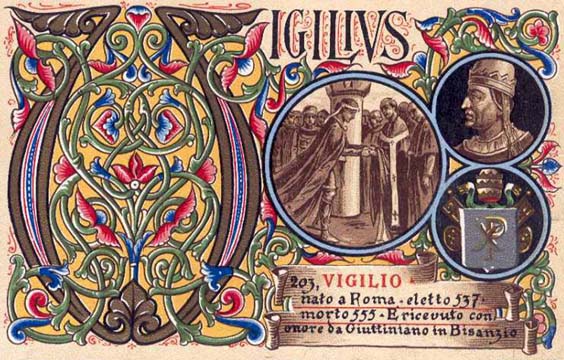 VIGILIVS
203, VIGILIO -
nato a Roma - eletto 537 -
morto 555 - E ricevuto con
onore da Giuttiniano in Bisanzio